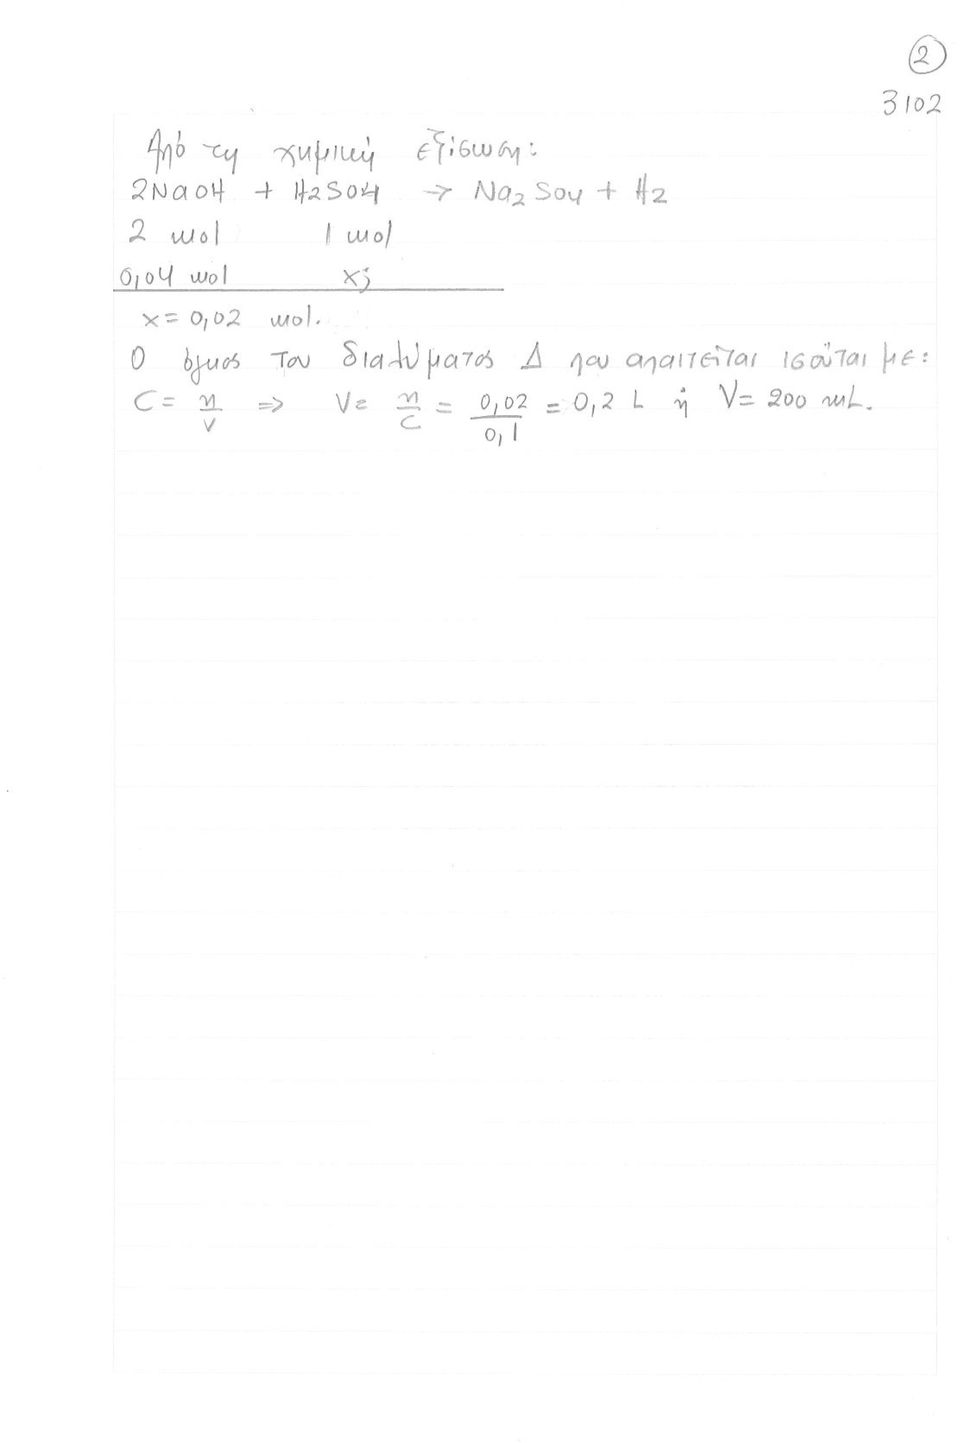 2
3102
Από τη χημική εξίσωση:
2NaOH + H2SO4 → Na2SO4 + H2
2 mol 1 mol
0,04 mol x;
x = 0,02 mol.
Ο όγκος του διαλύματος Δ που απαιτείται ισούται με:
C = n/V => V = n/C = 0,02/0,1 = 0,2 L ή V = 200 mL.